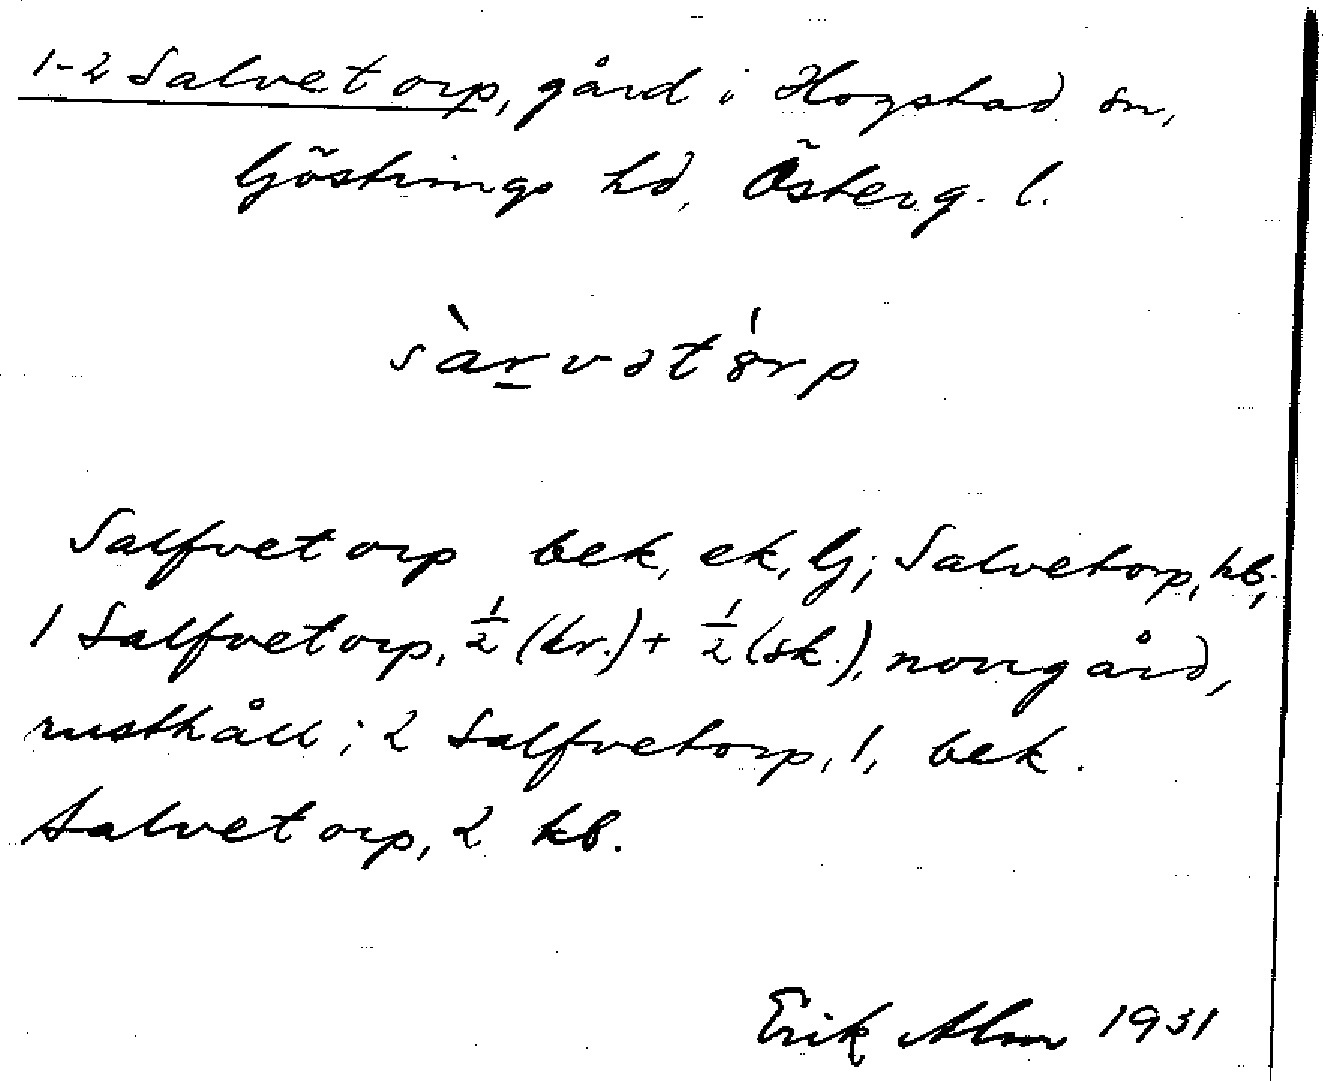 1-2 Salvetorp, gård i Hogstad sn,
Göstrings hd, Österg. l.
sàrvətórp
Salfvetorp bek, ek, Gj; Salvetorp, hb;
1 Salfvetorp, ½ (kr.) + ½ (sk.), norrgård,
rusthåll; 2 Salfvetorp, 1, bek.
Salvetorp, 2 hb.
Erik Alm 1931